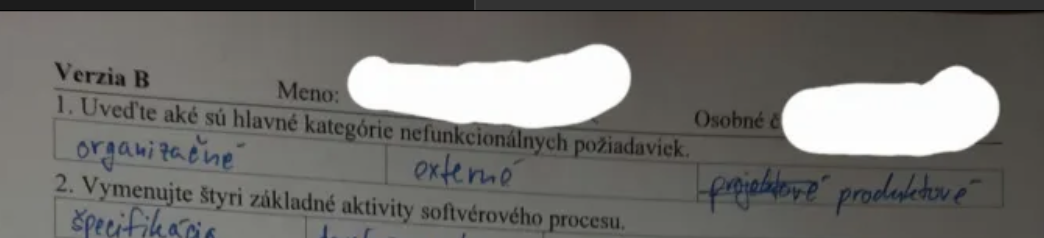 Verzia B Meno: Osobné č
1. Uveďte aké sú hlavné kategórie nefunkcionálnych požiadaviek.
organizačné externé projektové produktové
2. Vymenujte štyri základné aktivity softvérového procesu.
špecifikácia